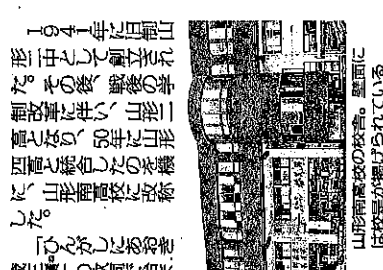 1941年に旧制山
形二中として創立され
た。その後、戦後の学
制改革に伴い、山形二
高となり、50年に山形
四高と統合したのを機
に、山形南高校に改称
した。
「ひんがしにあおき
山形南高校の校舎。壁面に
は校章が掲げられている